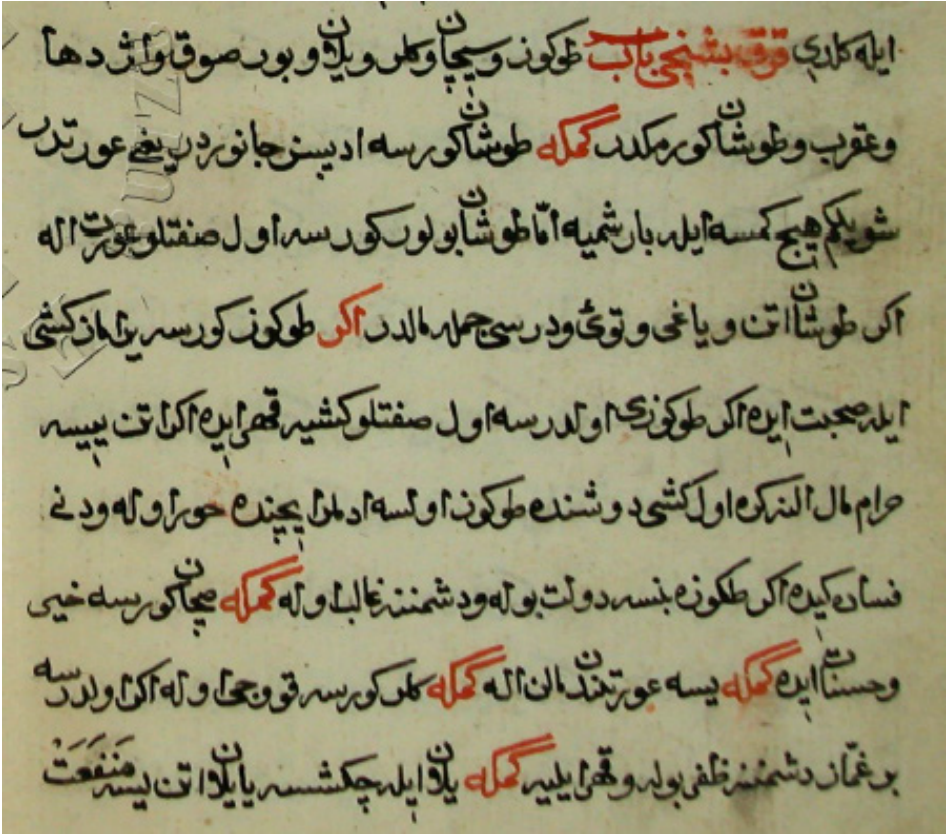 ايله كلدى قرق بشنجى باب طوكوز و سيچان و كلر و يلان و بور صوق و اژدها
و عقرب و طوشان كورمكدر كمكه طوشان كورسه اديسز جانوردر يعنى عورتدر
شويلكم هيچ كمسه ايله بارشميه امّا طوشان بولور كورسه اول صفتلو عورت اله
اكر طوشان اتن و ياغى و توى و درسى جمله مالدر اكر طوكوز كورسه يرامان كشى
ايله صحبت ايده اكر طوكوزى اولدرسه اول صفتلو كشيه قهر ايده اكر اتن ييسه
حرام مال النه كره اول كشى دوشنده طوكوز اولسه ادملر ايچنده خور اوله و دنى
فساده كيده اكر طكوزه بنسه دولت بوله و دشمننه غالب اوله كمكه صچان كورسه خير
و حسنات ايده كمكه ييسه عورتندن مالن اله كمكه كلر كورسه قووجى اوله اكر اولدرسه
بر غمّاز دشمننه ظفر بوله و قهر ايليه كمكه يلان ايله چكشسه يا يلان اتن ييسه مَنفَعَت